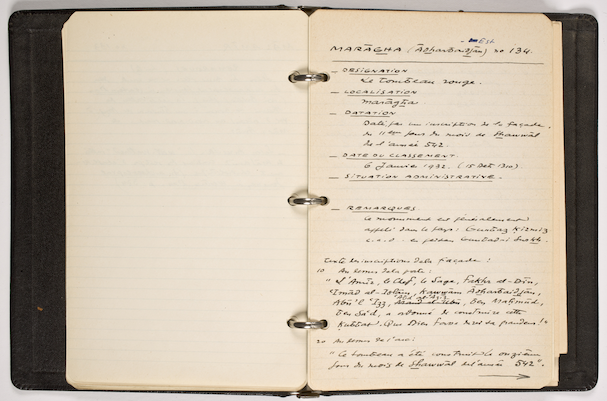 Est
MARĀGHA (Ādharbaidjān) no 134.
— DÉSIGNATION
Le tombeau rouge.
— LOCALISATION
Marāgha.
— DATATION
Daté par une inscription de la façade,
du 11ème jour du mois de Shawwāl
de l'année 542.
— DATE DU CLASSEMENT.
6 Janvier 1932. (15 Deï 1310)
— SITUATION ADMINISTRATIVE.
— REMARQUES
Le monument est généralement
appelé dans le pays: Gunbad Kirmiz
c.à.d. en persan Gunbad-i Surkh.
texte des inscriptions de la façade:
1o Au dessus de la porte:
"L'Amīr, le Chef, le Sage, Fakhr al-Dīn,
'Imād al-Islām, Kawwām Ādharbaidjān,
Abū'l 'Izz, 'Abd al-'Azīz ben Mahmūd,
ben Sa'd, a ordonné de construire cette
Kubbat. Que Dieu fasse durer sa grandeur!"
2o Au dessus de l'arc:
"Ce tombeau a été construit le onzième
jour du mois de Shawwāl de l'année 542".